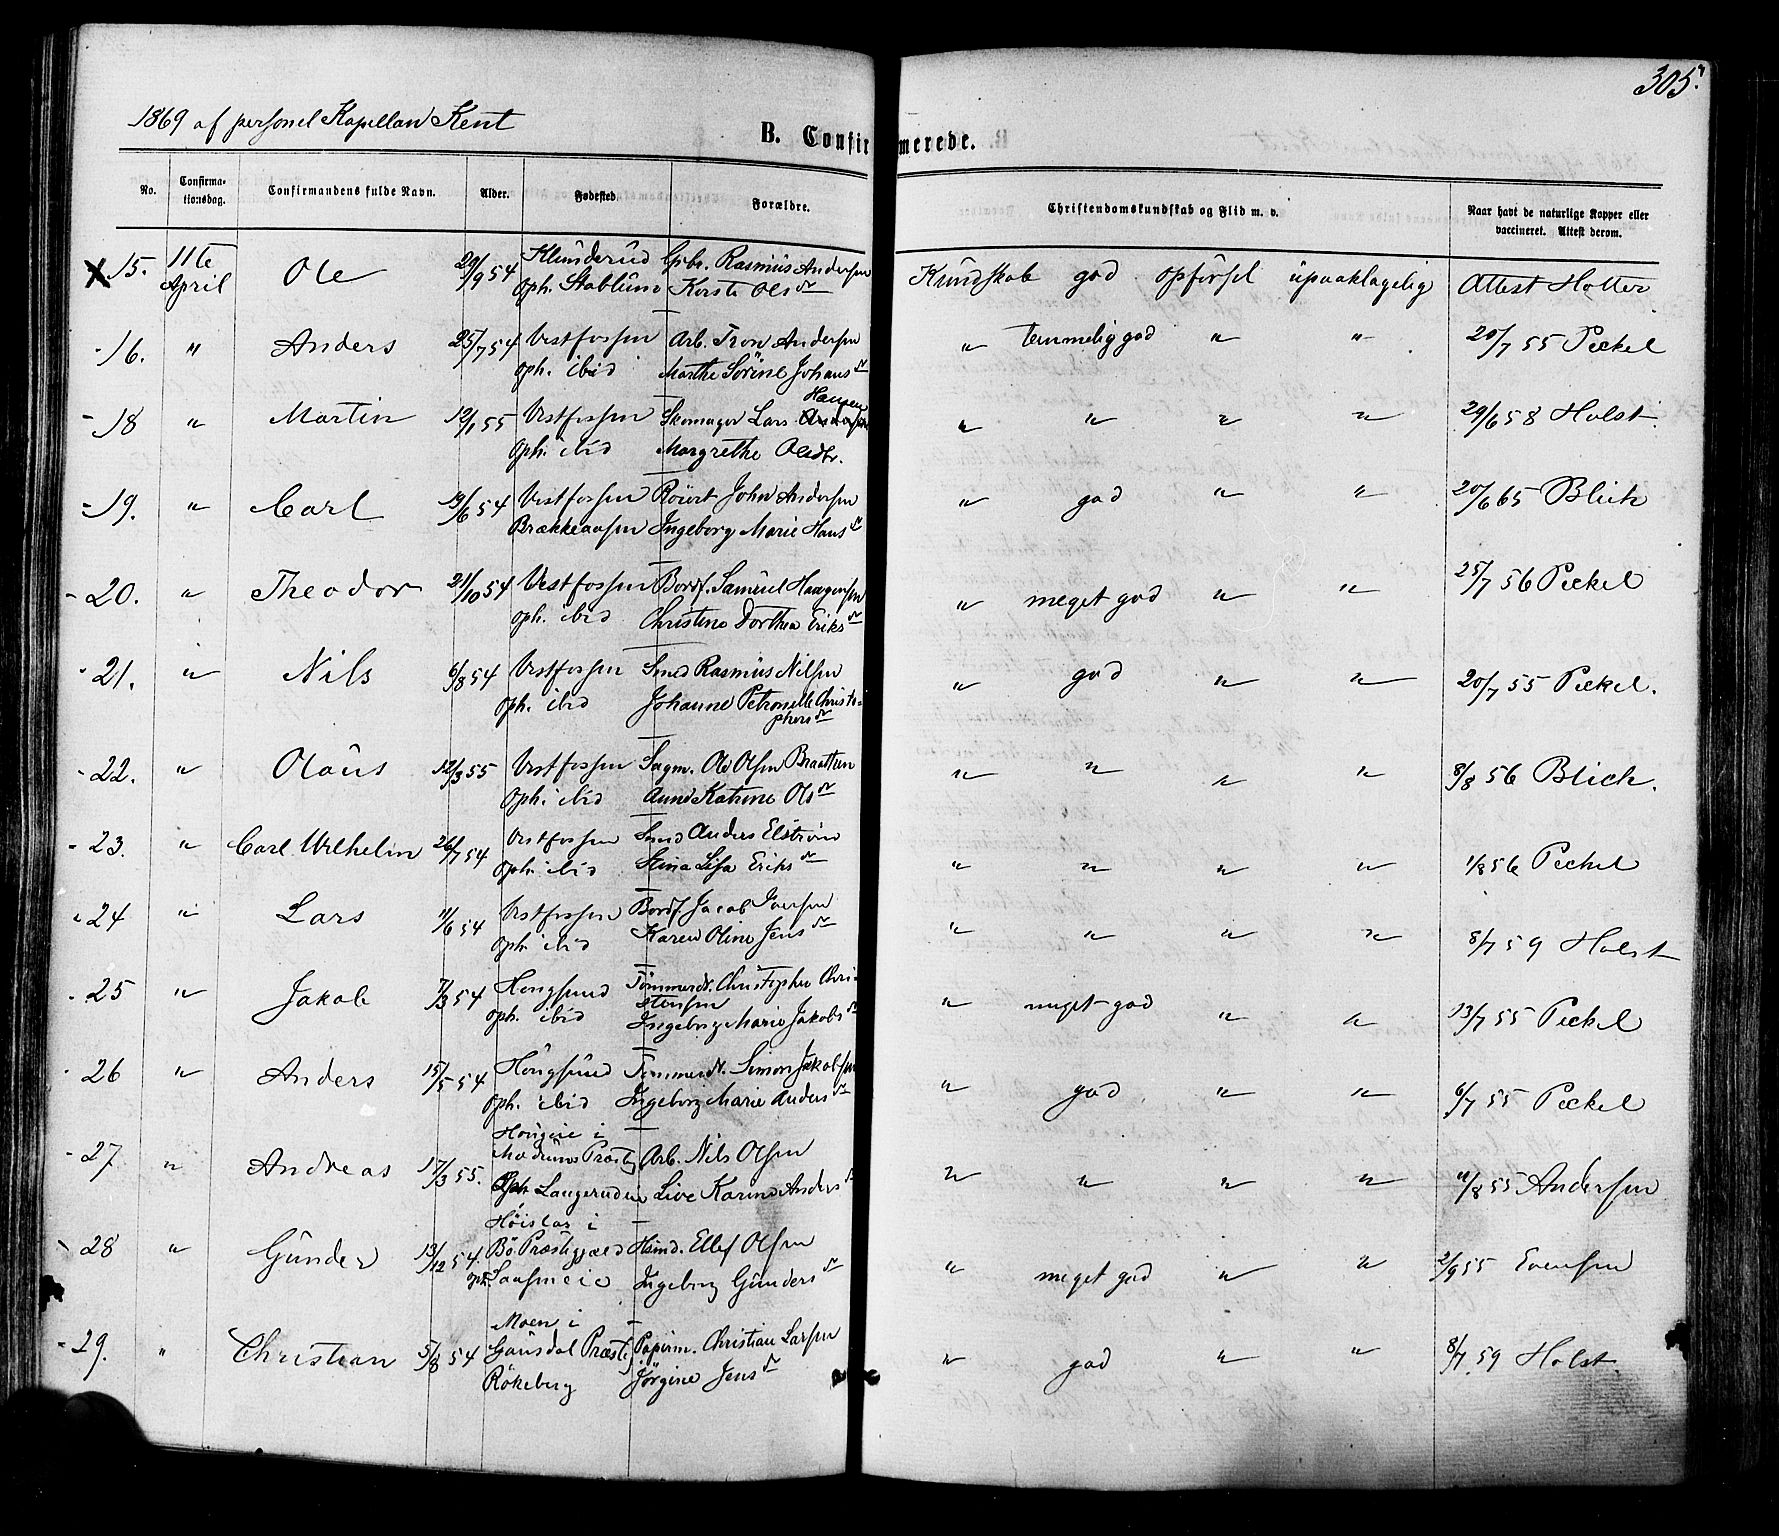 305.
1869 af personel Kapellan Kent
B. Confirmerede.
No. Confirma-tionsdag. Confirmandens fulde Navn. Alder. Fødested. Forældre. Christendomskundskab og Flid m. v. Naar havt de naturlige Kopper eller vaccineret. Attest derom.
15. 11te April Ole 29/9 54 Klunderud Gbr. Rasmus Andersen Kundskab god opførsel upaaklagelig Attest Hotter
oph. Stablum Kersti Olsdr
16. " Anders 25/7 54 Vestfossen Arb. Tron Andersen " temmelig god " " 20/7 55 Peckel
oph. ibid Marthe Sörine Johansdr
18 " Martin 12/1 55 Vestfossen Skomager Lars Hansen " " " " 29/6 58 Holst.
oph. ibid Margrethe Olsdtr.
19. " Carl 19/6 54 Vestfossen Röiert John Andersen " god " " 20/6 65 Blich
Brækkeaasen Ingeborg Marie Hansdr
20. " Theodor 21/10 54 Vestfossen Bordf. Samuel Haagensen " meget god " " 25/7 56 Peckel
oph. ibid Christine Dorthea Eriksdr
21. " Nils 6/8 54 Vestfossen Smed Rasmus Nilsen " god " " 20/7 55 Peckel.
oph. ibid Johanne Petronelle Christo-
phersdr
22. " Olaus 12/3 55 Vestfossen Sagm. Ole Olsen Braatten " " " " 8/8 56 Blich.
oph. ibid Anne Katrine Olsdr
23. " Carl Wilhelm 26/7 54 Vestfossen Smed Anders Elström " " " " 1/8 56 Peckel
oph. ibid Stina Lisa Eriksdr
24 " Lars 11/6 54 Vestfossen Bordf. Jacob Iversen " " " " 8/7 59 Holst
oph. ibid Karen Oline Jensdr
25 " Jakob 7/3 54 Hougsund Tömmerdr. Christopher Chri-
stensen " meget god " " 13/7 55 Peckel
oph. ibid Ingeborg Marie Jakobsdr
26 " Anders 15/5 54 Hougsund Tömmerdr. Simon Jakobsen " god " " 6/7 55 Peckel
oph. ibid Ingeborg Marie Andersdr
27 " Andreas 17/3 55. Hougeie i
Modums Præstg Arb. Nils Olsen " " " " 11/8 55 Andersen
Oph. Langerudeie Live Karine Andersdr
28 " Gunder 13/12 54 Höislas i
Bö Præstegjæld Hsmd. Ellef Olsen " meget god " " 2/9 55 Evensen
oph. Ingeborg Gundersdr
29. " Christian 5/8 54 Moen i
Gausdal Præstg Papirm. Christian Larsen " god " " 8/7 59 Holst.
Rökeberg Jörgine Jensdr